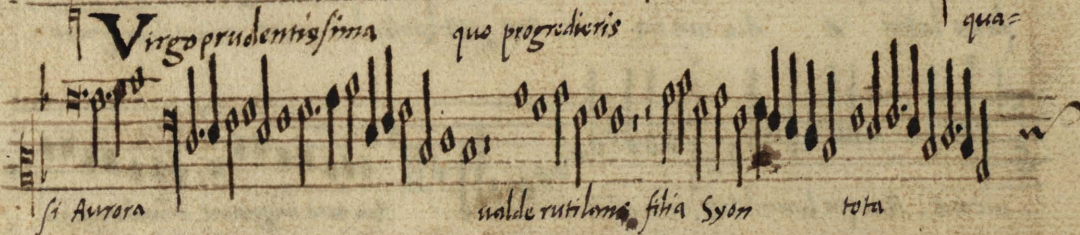 Virgo prudentissima quo progredieris qua=
si Aurora valde rutilans filia Syon tota